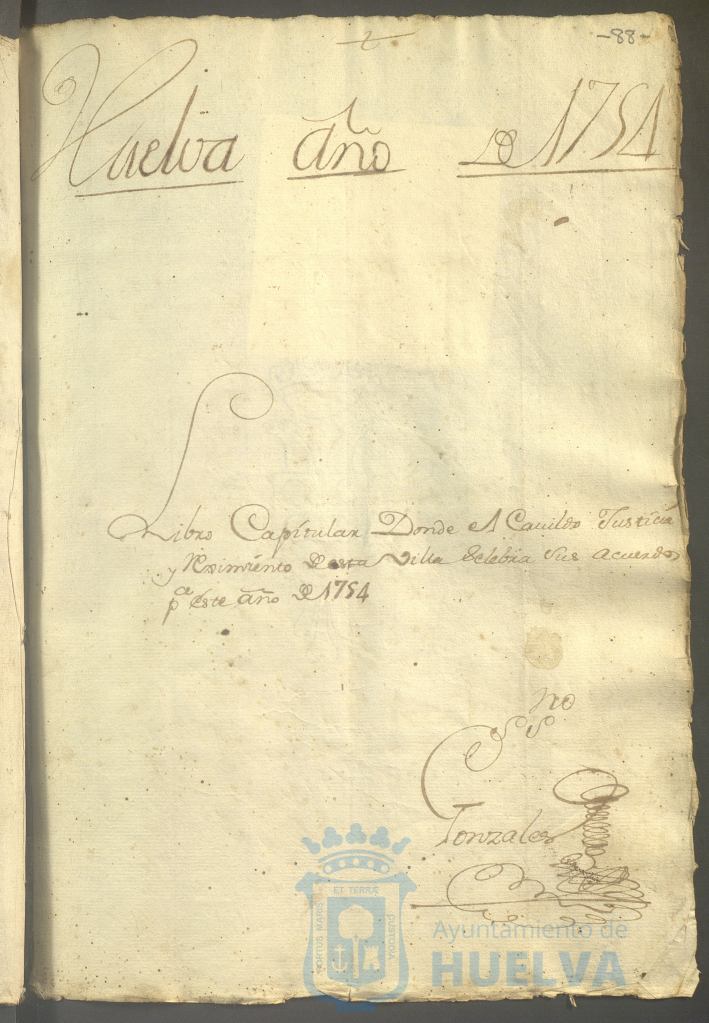 -88-
Huelva año de 1754
Libro Capitular Donde el Cauildo Justicia
y Reximiento de esta Villa Selebra sus acuerdos
pa este año de 1754
no
Gonzales
ET TERRÆ
PORTUS MARIS
CUSTODIA
Ayuntamiento de
HUELVA